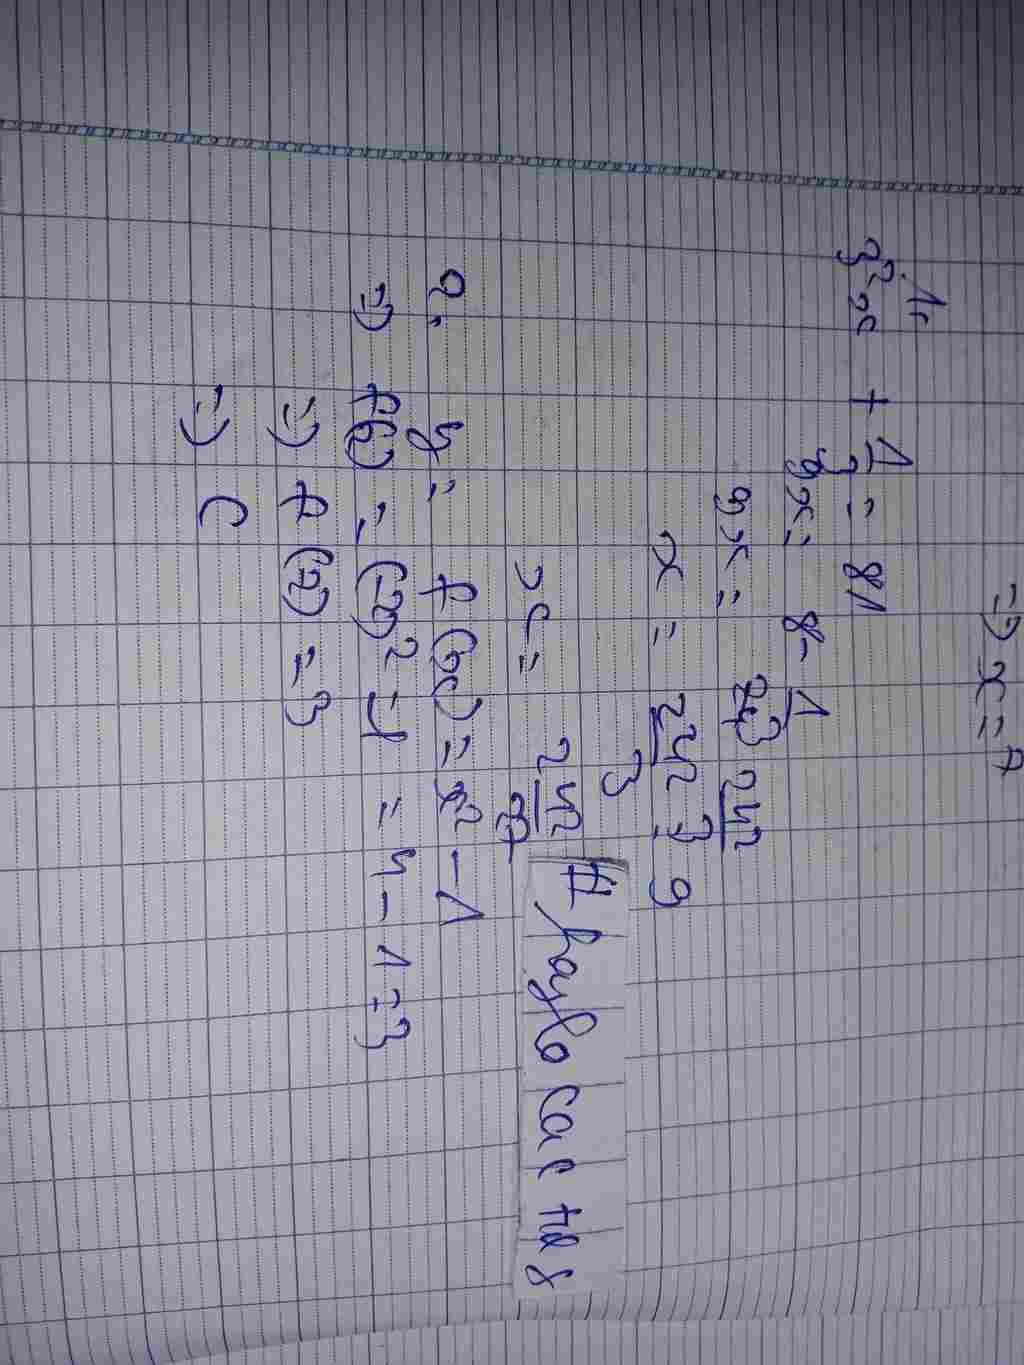 => x = 7
1,
3² x + 1/3 = 81
9x = 8- 1/3
9x = 243 242/3
x = 242/3 : 9
x = 242/27
# phylocactus
2. y = f(x) = x² - 1
=> f(2) = (-2)² - 1 = 4 - 1 = 3
=> f(2) = 3
=> C